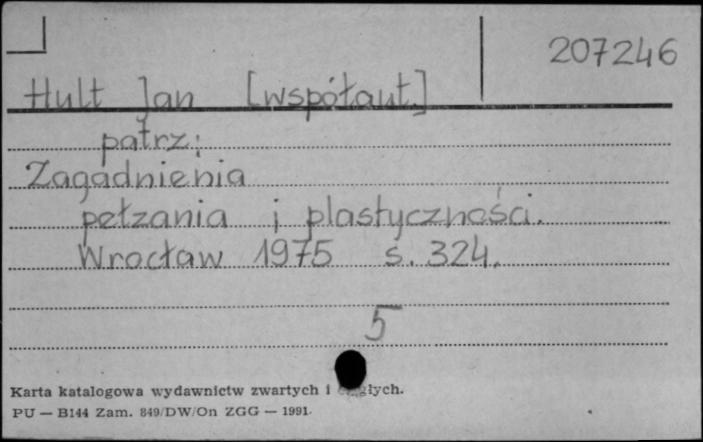 207246
Hult Jan [współaut.]
patrz:
Zagadnienia
pełzania i plastyczności.
Wrocław 1975 s. 324.
5
Karta katalogowa wydawnictw zwartych i
PU — B144 Zam. 849/DW/On ZGG — 1991.